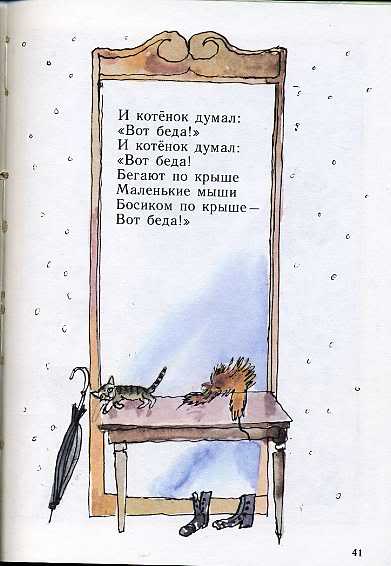 И котёнок думал:
«Вот беда!»
И котёнок думал:
«Вот беда!
Бегают по крыше
Маленькие мыши
Босиком по крыше—
Вот беда!»
41